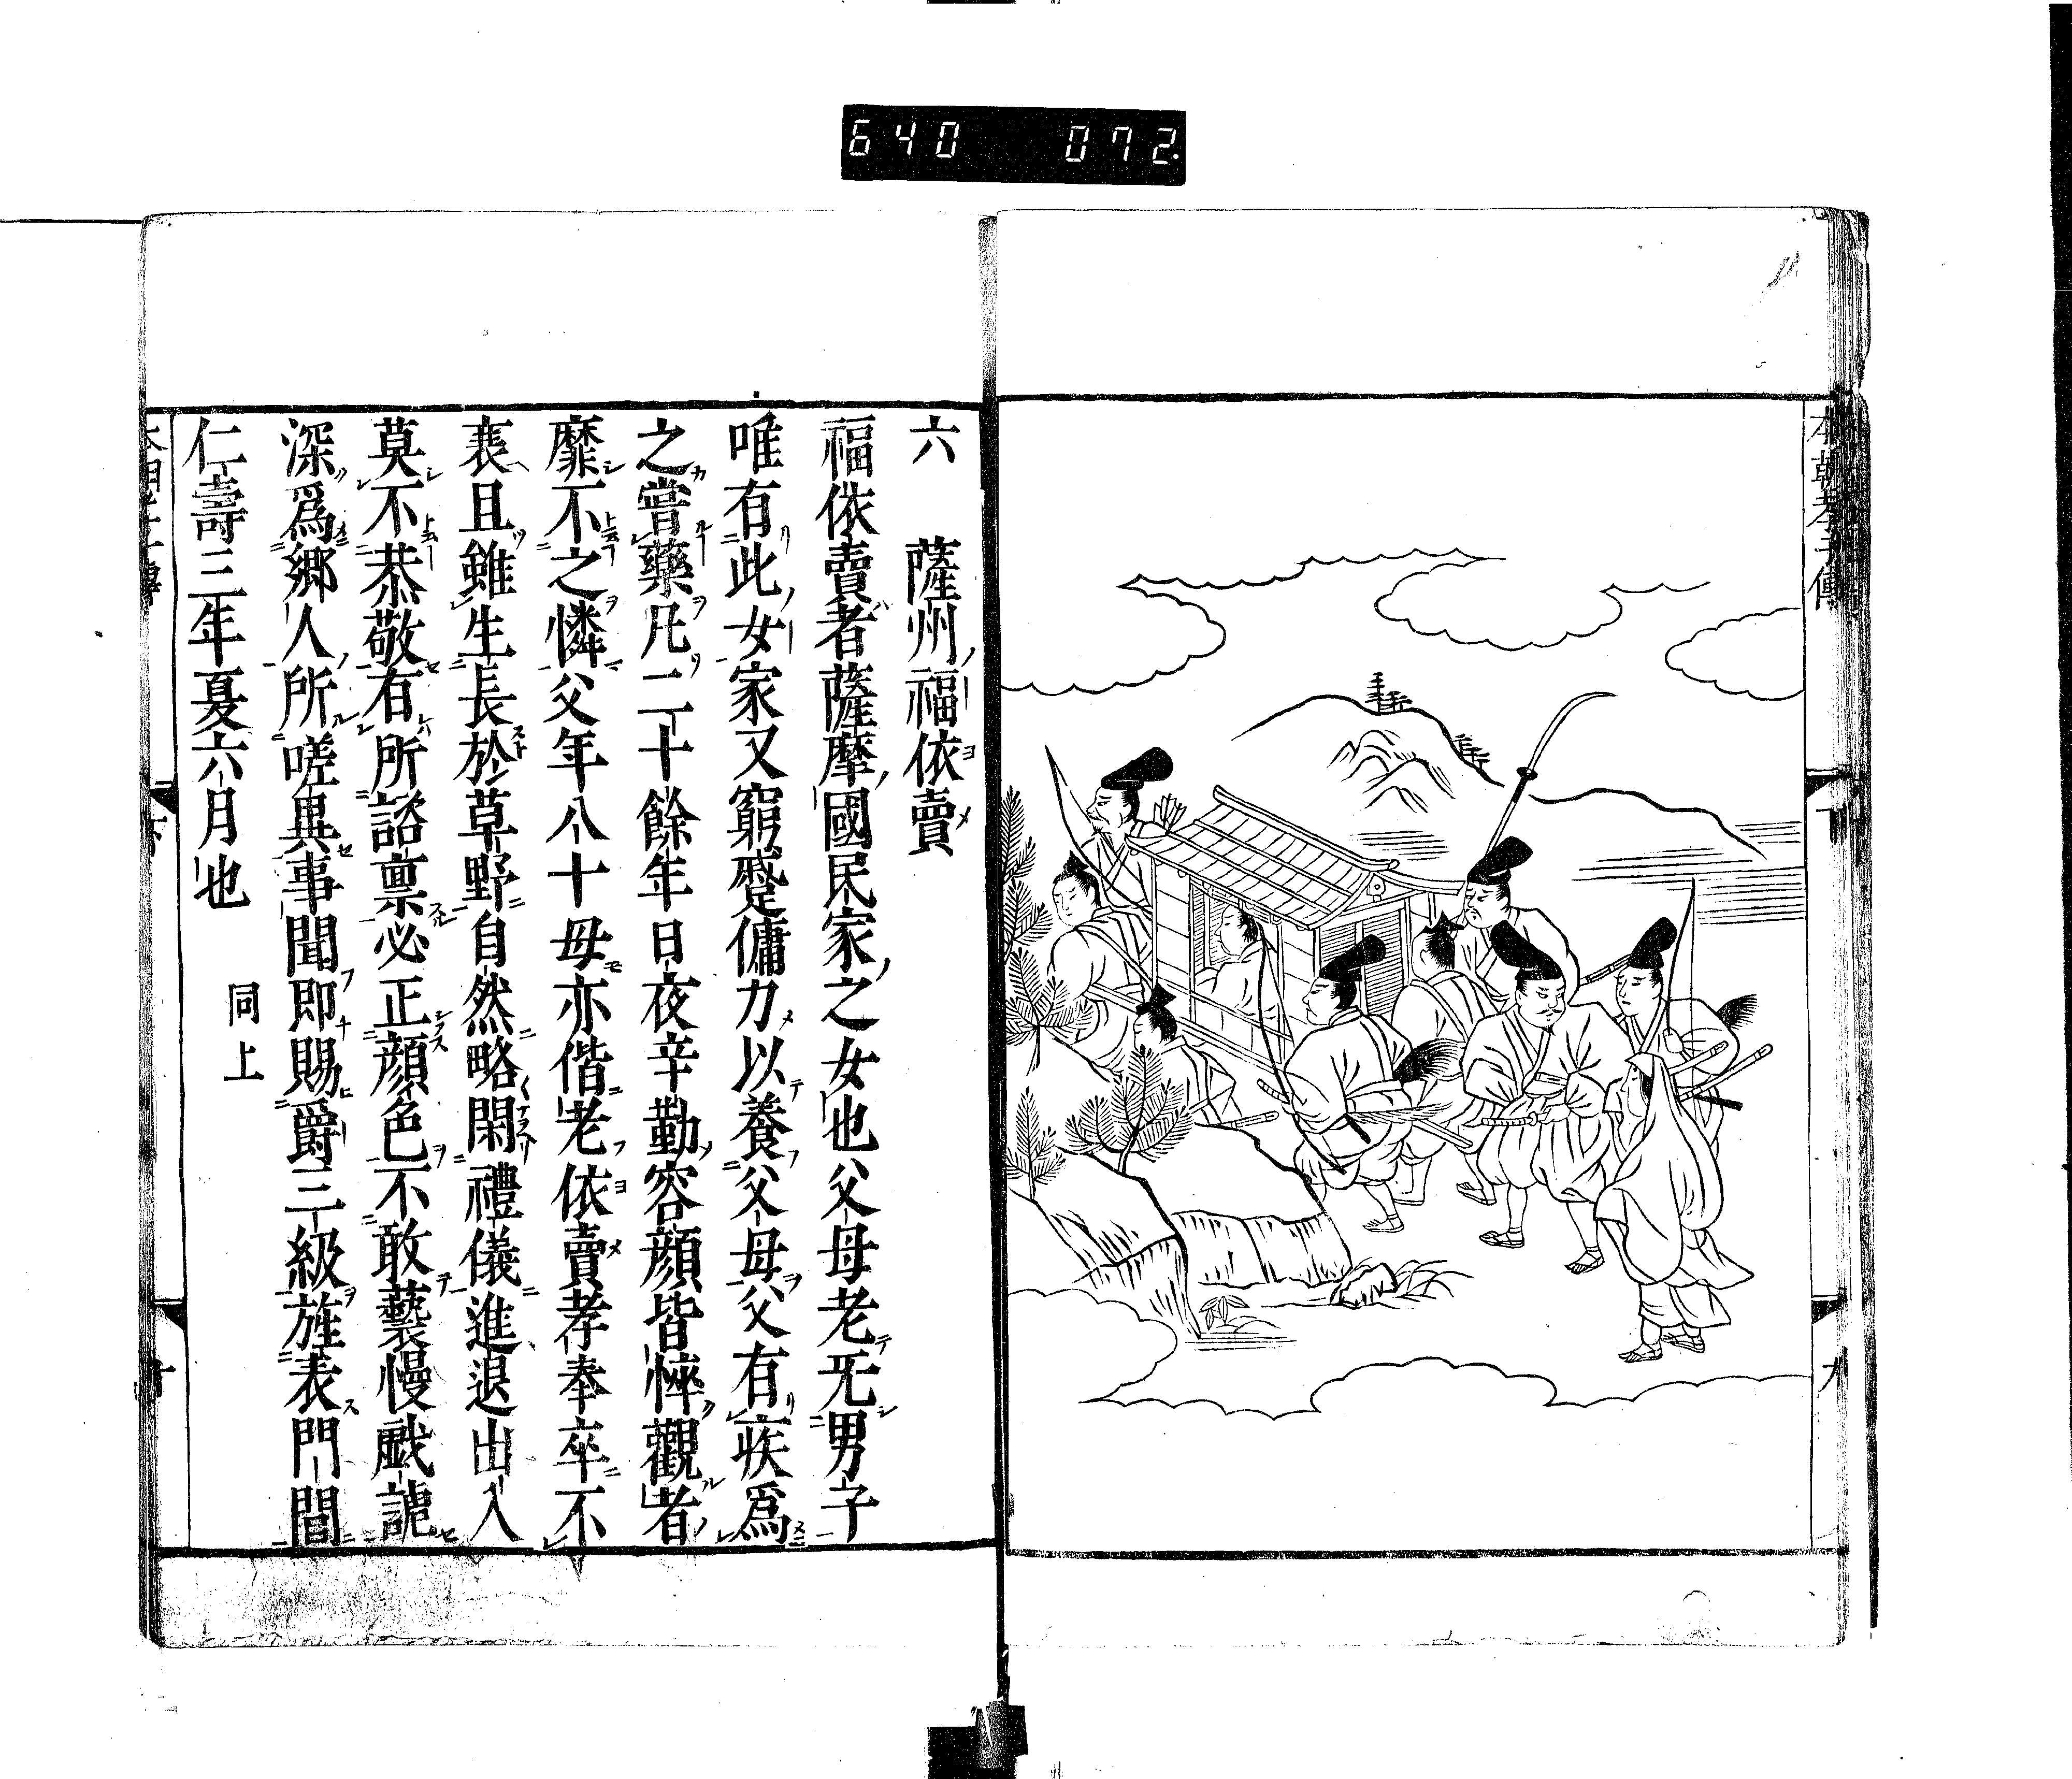 640 072
本朝孝子傳
下
九
六 薩州福依賣
福依賣者薩摩國民家之女也父母老无男子
唯有此女家又窮蹙傭力以養父母父有疾爲
之嘗藥凡二十餘年日夜辛勤容顔皆悴觀者
靡不之憐父年八十母亦偕老依賣孝奉卒不
衰且雖生長於草野自然略閑禮儀進退出入
莫不恭敬有所諮稟必正顔色不敢褻慢戯謔
深爲郷人所嗟異事聞即賜爵三級旌表門閭
仁壽三年夏六月也 同上